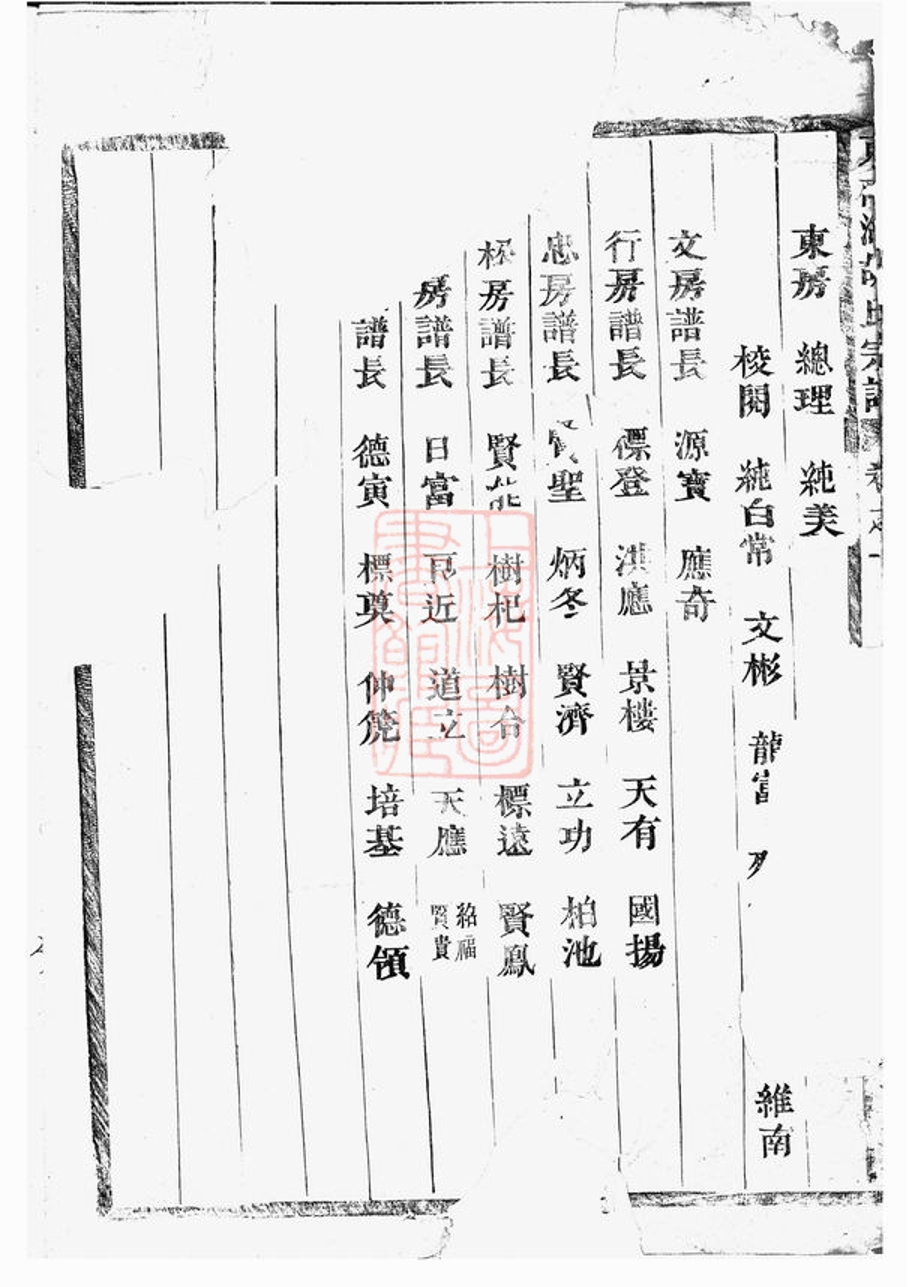 氏宗譜 卷之
東房 總理 純美
校閱 純白常 文彬 龍富 維南
文房譜長 源寶 應奇
行房譜長 標登 洪應 景樓 天有 國揚
忠房譜長 賢聖 炳冬 賢濟 立功 柏池
松房譜長 賢能 樹杞 樹合 標遠 賢鳳
房譜長 日富 近 道立 天應 紹福 賢貴
譜長 德寅 標奠 仲箎 培基 德領
上海圖書館藏